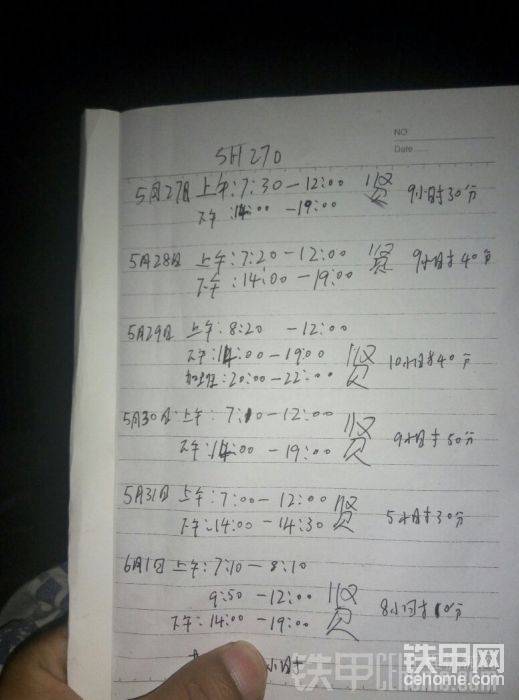 NO
Date
SH270
5月27日 上午:7:30-12:00 贤 9小时30分
下午:14:00-19:00
5月28日 上午:7:20-12:00 贤 9小时40分
下午:14:00-19:00
5月29日 上午:8:20-12:00
下午:14:00-19:00 贤 10小时40分
加班:20:00-22:00
5月30日 上午:7:10-12:00 贤
下午:14:00-19:00 9小时50分
5月31日 上午:7:00-12:00 贤 5小时30分
下午:14:00-14:30
6月1日 上午:7:10-8:10
9:50-12:00 贤 8小时10分
下午:14:00-19:00
小时
铁甲网
cehome.com